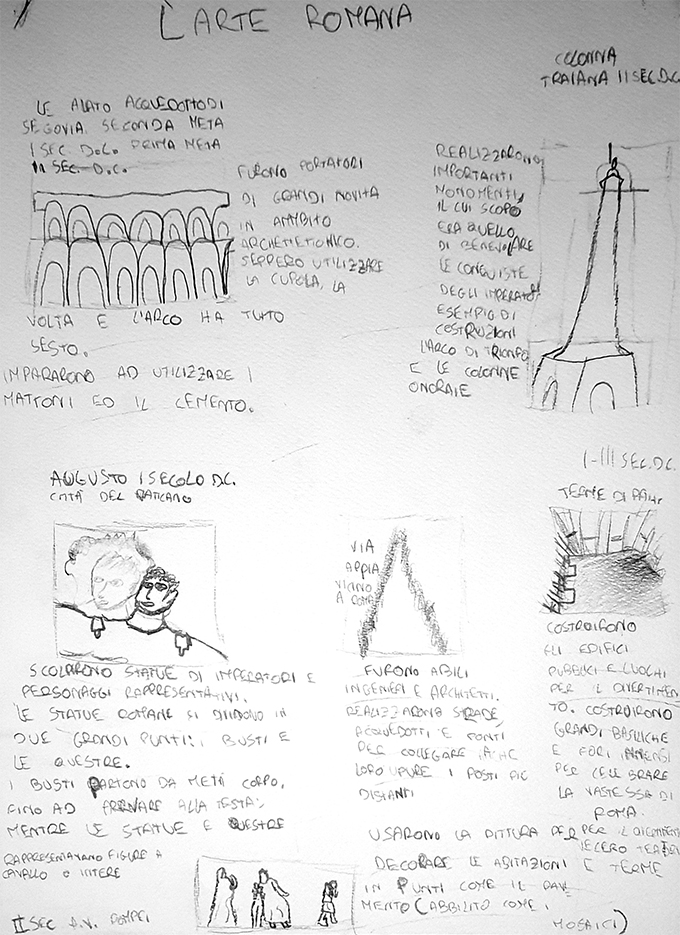 L'ARTE ROMANA
COLONNA
TRAIANA II SEC. D.C.
LE ALATO ACQUEDOTTO DI
SEGOVIA. SECONDA META
I SEC. D.C. PRIMA META
SEC. D.C.
FURONO PORTATORI
DI GRANDI NOVITA
IN AMBITO
ARCHETIETONICO.
SEPPERO UTILIZZARE
LA CUPOLA, LA
VOLTA E L'ARCO HA TUTTO
SESTO.
IMPARARONO AD UTILIZZARE I
MATTONI ED IL CEMENTO.
REALIZZARONO
IMPORTANTI
MONOMENTI,
IL CUI SCOPO
ERA QUELLO
DI
LE CONQUISTE
DEGLI IMPERATORI
ESEMPIO DI
COSTRUZIONI
L'ARCO DI TRIONFO
E LE COLONNE
ONORAIE
AUGUSTO I SECOLO D.C.
CITTÀ DEL VATICANO
SCOLPIRONO STATUE DI IMPERATORI E
PERSONAGGI RAPPRESENTATIVI.
LE STATUE ROMANE SI DIVIDONO IN
DUE GRANDI PUNTI: BUSTI E
LE QUESTRE.
I BUSTI PARTONO DA METÀ CORPO,
FINO AD ARRIVARE ALLA TESTA;
MENTRE LE STATUE E QUESTRE
RAPPRESENTAVANO FIGURE A
CAVALLO O INTERE
II SEC A.V. POMPEI
VIA
APPIA
VICINO
A ROMA
FURONO ABILI
INGENIERI E ARCHITETTI.
REALIZZARONO STRADE,
ACQUEDOTTI E PONTI
PER COLLEGARE
LORO UPURE I POSTI PIÙ
DISTANTI
USARONO LA PITTURA PER
DECORARE LE ABITAZIONI
IN PUNTI COME IL PAVI
MENTO (ABBILITO COME I
MOSAICI)
I-III SEC. D.C.
TERME DI
COSTRUIRONO
GLI EDIFICI
PUBBLICI E LUOGHI
PER IL DIVERTIMEN
TO. COSTRUIRONO
GRANDI BASILICHE
E FORI IMMENSI
PER CELEBRARE
LA VASTESSA DI
ROMA.
PER IL
FECERO TEATRI
E TERME